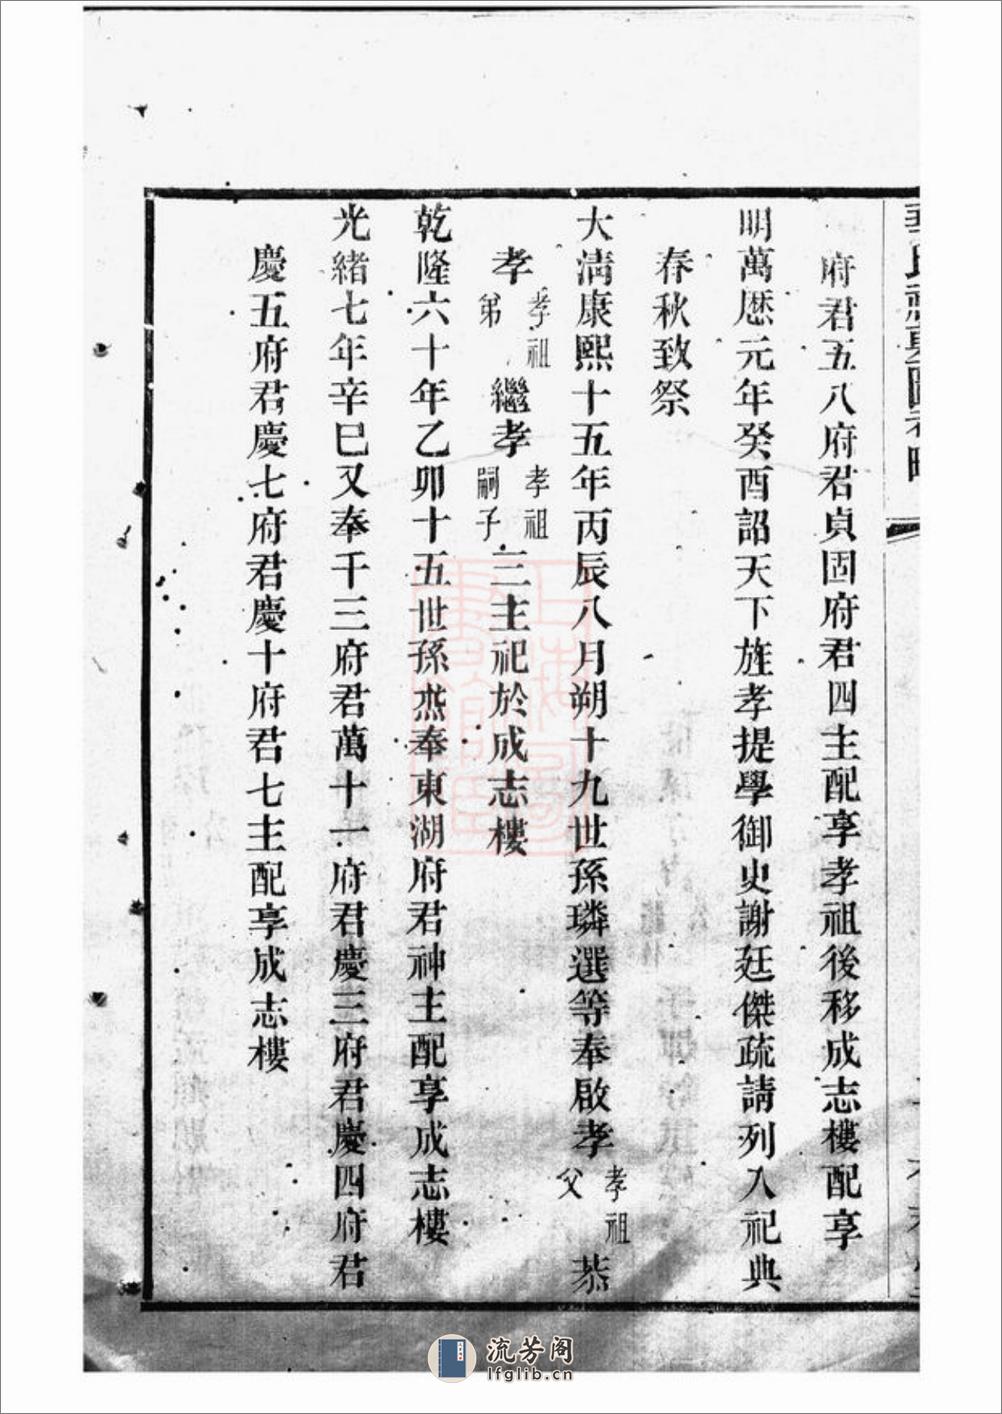 府君五八府君貞固府君四主配享孝祖後移成志樓配享
明萬厯元年癸酉詔天下旌孝提學御史謝廷傑疏請列入祀典
春秋致祭
大淸康熙十五年丙辰八月朔十九世孫璘選等奉啟孝孝祖父恭
孝孝祖弟繼孝孝祖嗣子三主祀於成志樓
乾隆六十年乙卯十五世孫燾奉東湖府君神主配享成志樓
光緒七年辛巳又奉千三府君萬十一府君慶三府君慶四府君
慶五府君慶七府君慶十府君七主配享成志樓
流芳阁
lfglib.cn